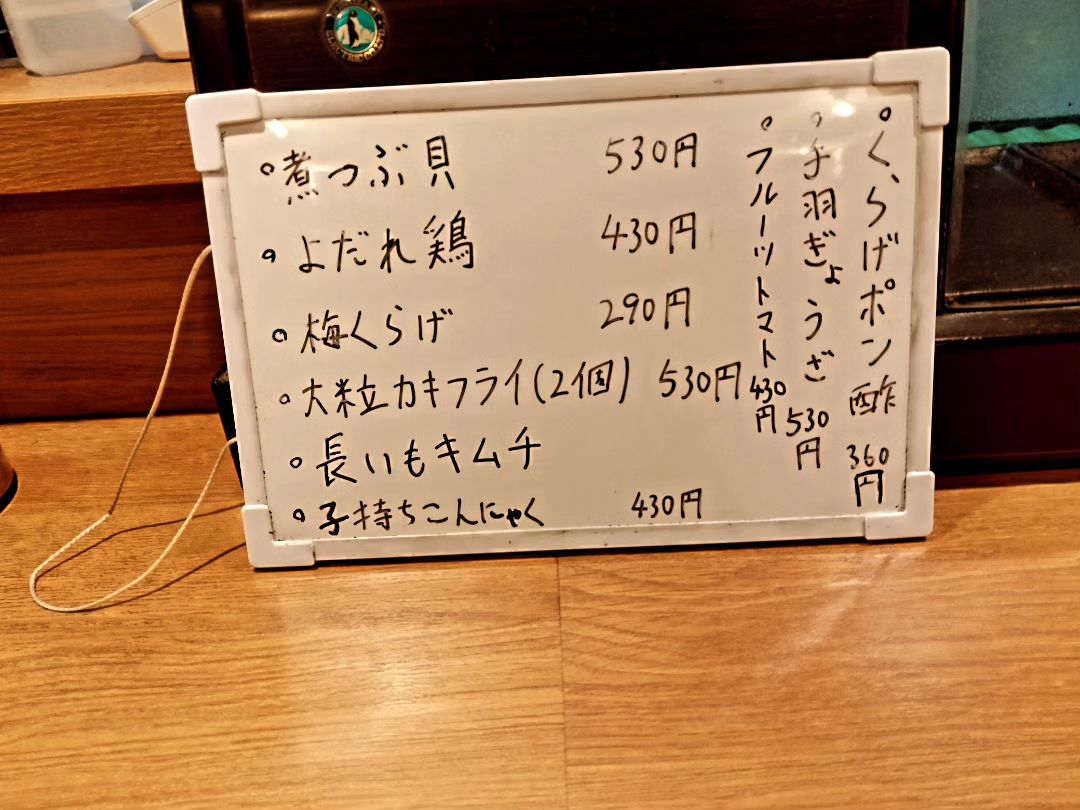 。煮つぶ貝 530円
。よだれ鶏 430円
。梅くらげ 290円
。大粒カキフライ(2個) 530円
。長いもキムチ
。子持ちこんにゃく 430円
。くらげポン酢 360円
。手羽ぎょうざ 530円
。フルーツトマト 430円